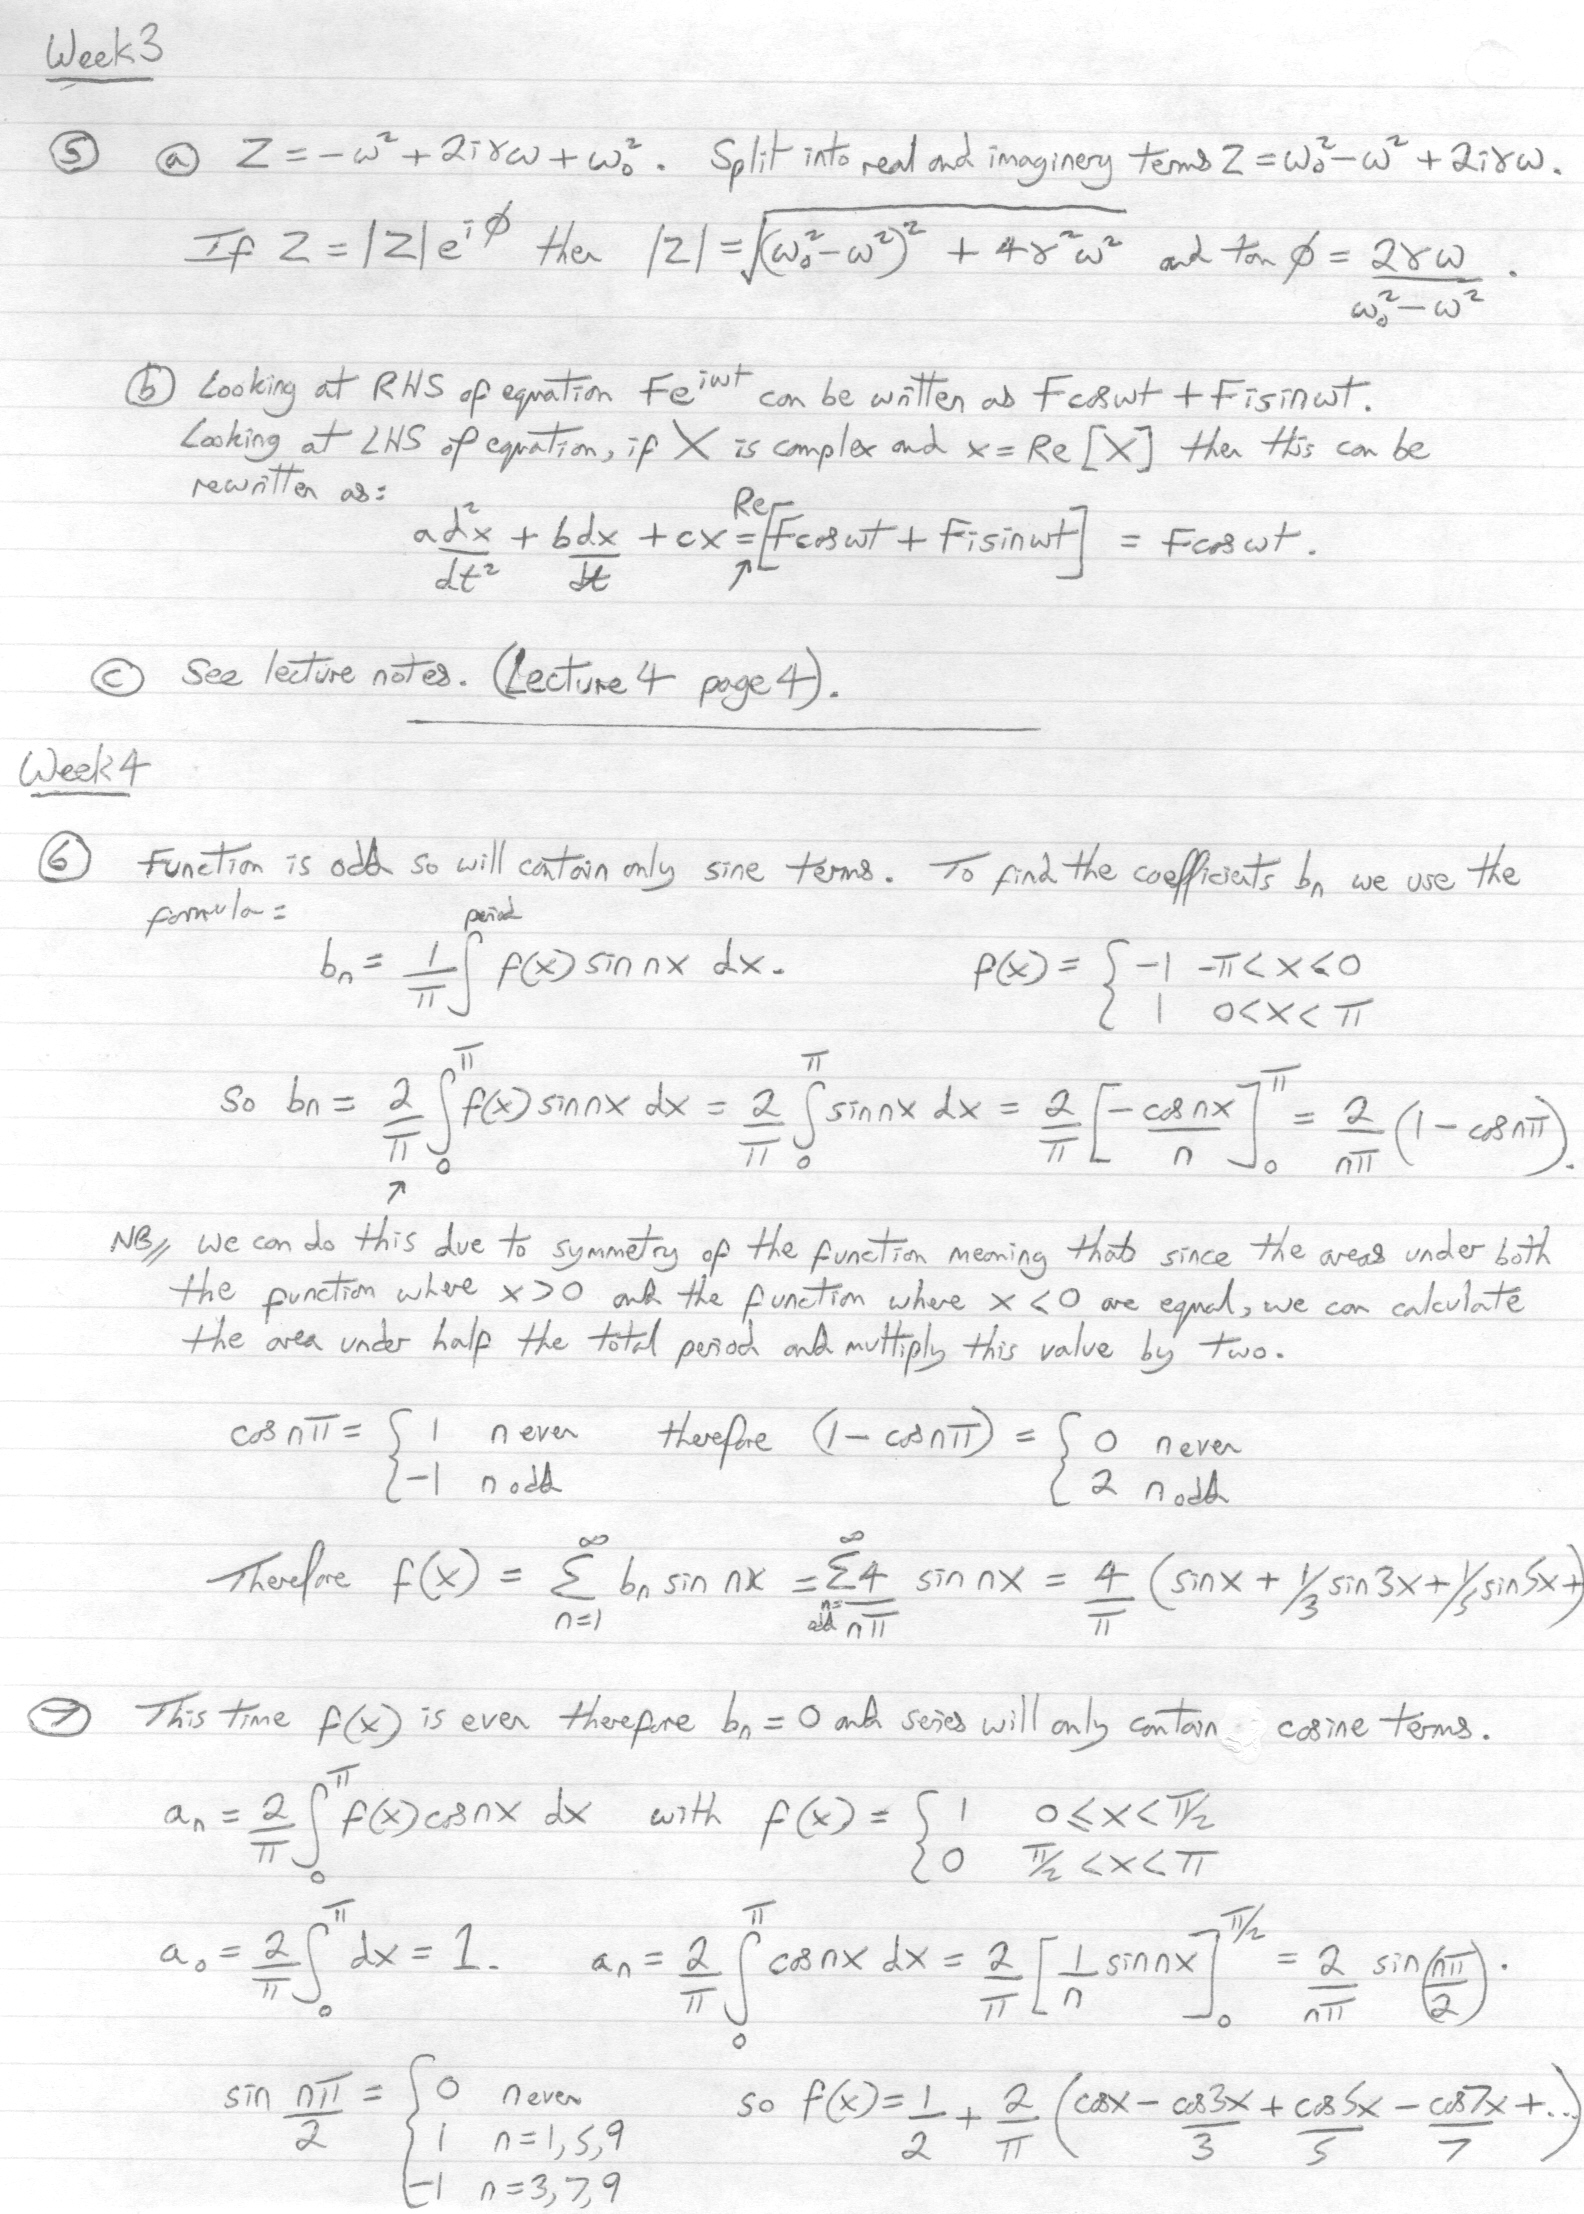 Week 3
⑤ ⓐ Z = -ω² + 2iγω + ω₀². Split into real and imaginery terms Z = ω₀² - ω² + 2iγω.
If Z = |Z|e^{iφ} then |Z| = √((ω₀² - ω²)² + 4γ²ω²) and tan φ = 2γω / (ω₀² - ω²).
ⓑ Looking at RHS of equation Fe^{iωt} can be written as Fcosωt + Fisinωt.
Looking at LHS of equation, if X is complex and x = Re[X] then this can be
rewritten as:
a d²x/dt² + b dx/dt + cx = Re[Fcosωt + Fisinωt] = Fcosωt.
↗
ⓒ See lecture notes. (Lecture 4 page 4).
Week 4
⑥ Function is odd so will contain only sine terms. To find the coefficients bₙ we use the
formula:
bₙ = 1/π ∫^{period} f(x) sin nx dx. f(x) = { -1 -π<x<0
1 0<x<π
So bₙ = 2/π ∫₀^π f(x) sin nx dx = 2/π ∫₀^π sin nx dx = 2/π [-cos nx / n]₀^π = 2/nπ (1 - cos nπ).
↗
NB// we can do this due to symmetry of the function meaning that since the areas under both
the function where x>0 and the function where x<0 are equal, we can calculate
the area under half the total period and multiply this value by two.
cos nπ = { 1 n even therefore (1 - cos nπ) = { 0 n even
-1 n odd 2 n odd
Therefore f(x) = Σ_{n=1}^∞ bₙ sin nx = Σ_{n= odd}^∞ 4/nπ sin nx = 4/π (sin x + 1/3 sin 3x + 1/5 sin 5x +)
⑦ This time f(x) is even therefore bₙ = 0 and series will only contain cosine terms.
aₙ = 2/π ∫₀^π f(x) cos nx dx with f(x) = { 1 0≤x<π/2
0 π/2<x<π
a₀ = 2/π ∫₀^π dx = 1. aₙ = 2/π ∫₀^π cos nx dx = 2/π [1/n sin nx]₀^{π/2} = 2/nπ sin(nπ/2).
sin nπ/2 = { 0 n even so f(x) = 1/2 + 2/π (cos x - cos 3x/3 + cos 5x/5 - cos 7x/7 + ...)
1 n=1,5,9
-1 n=3,7,9